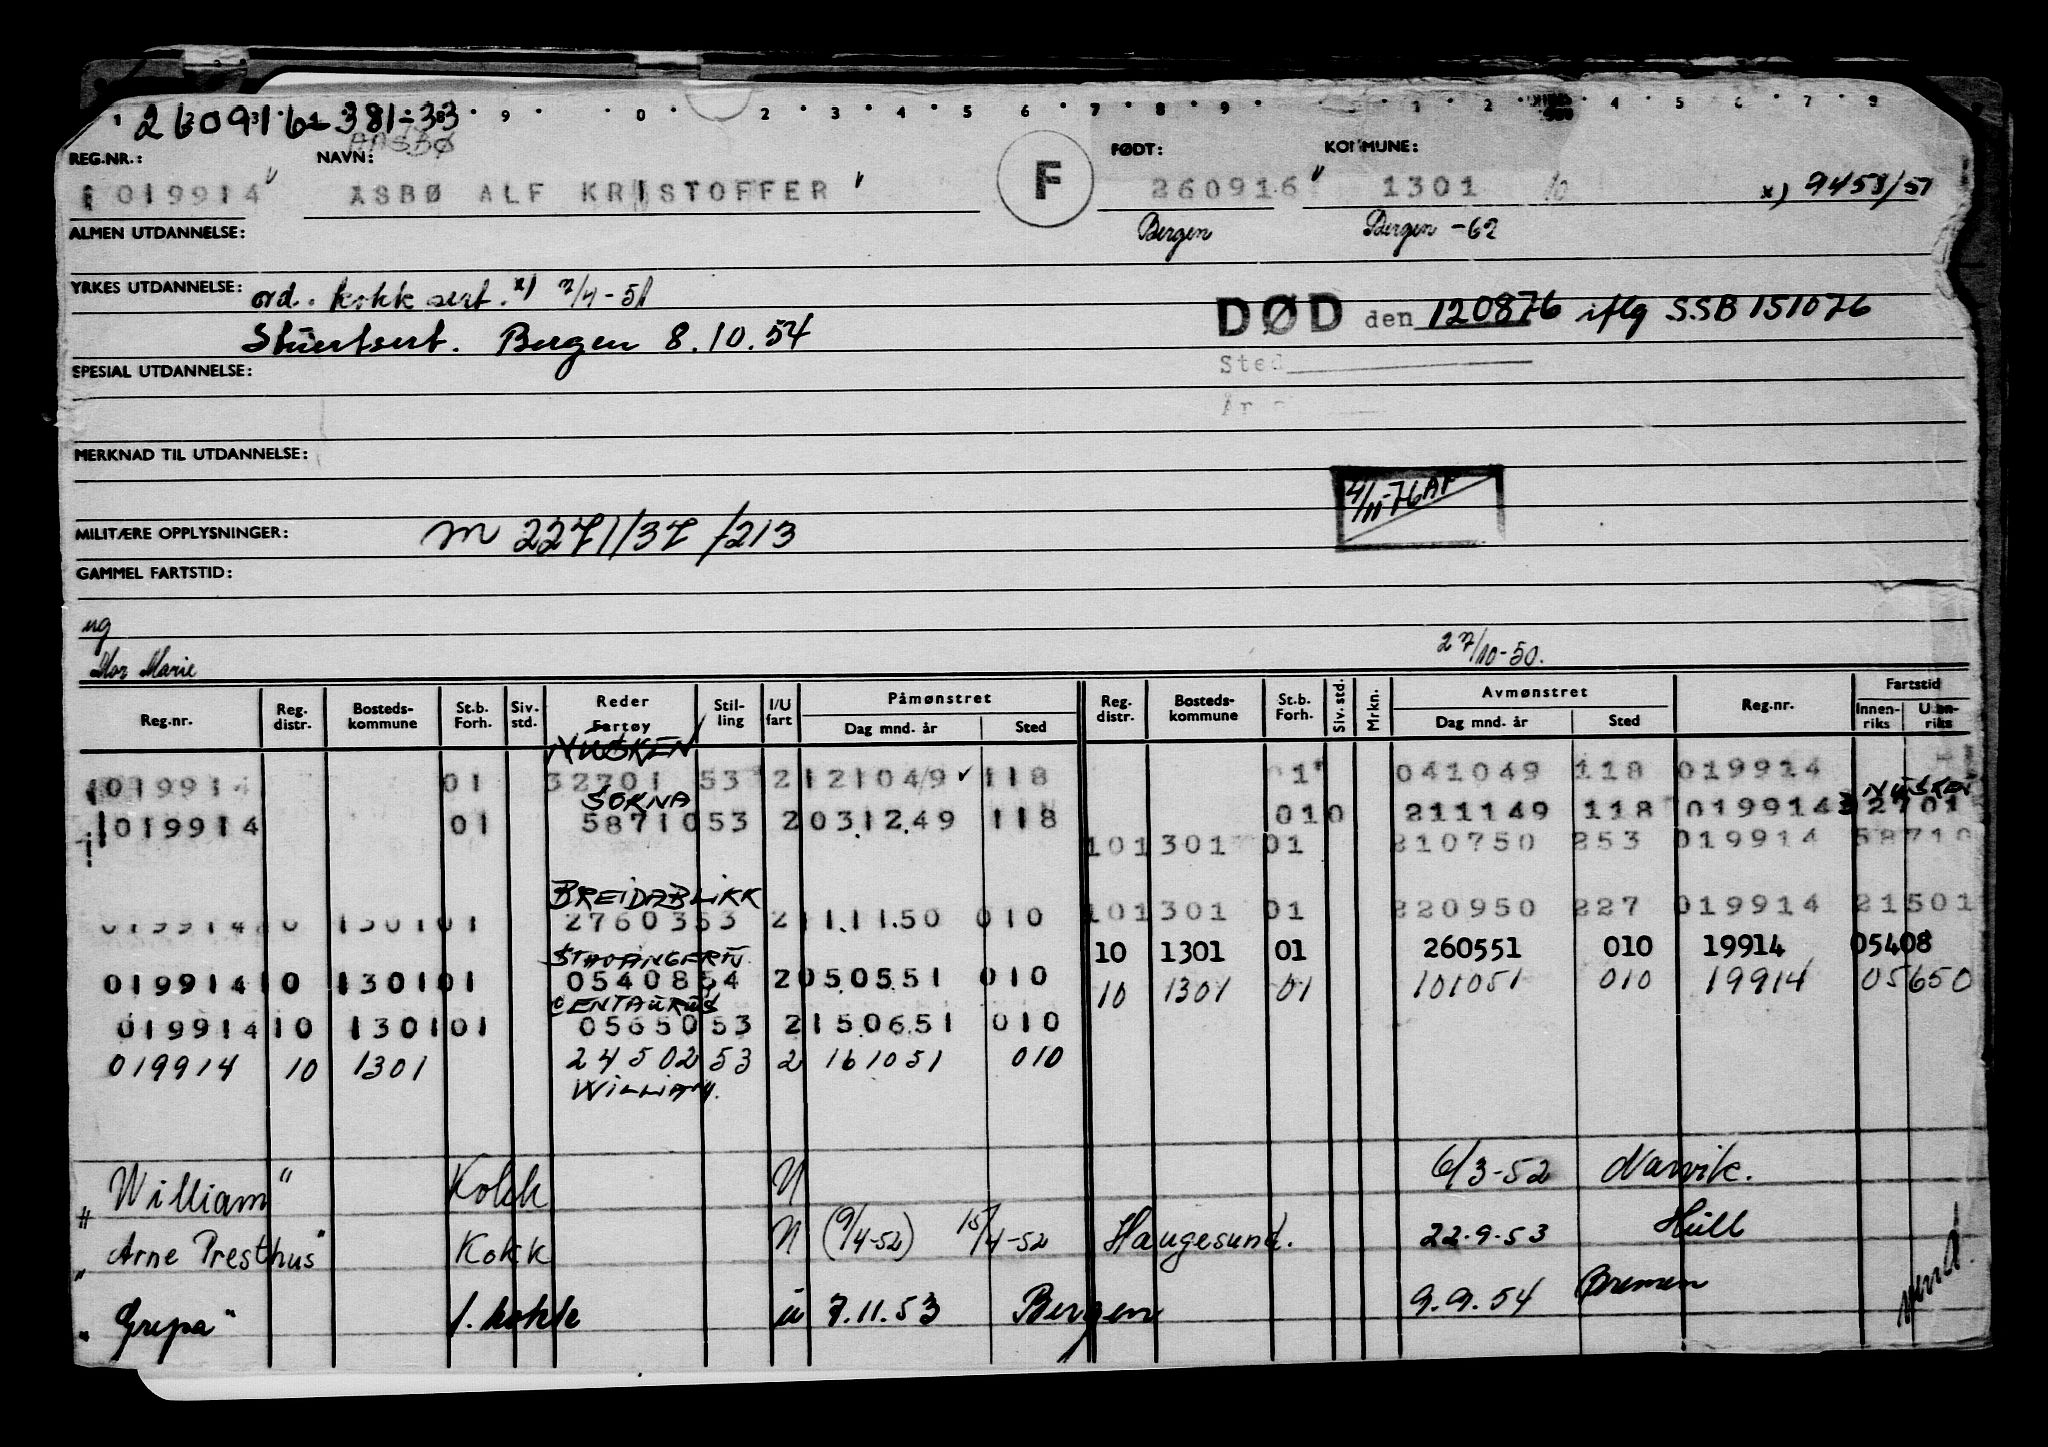 260916 381-33
AASBØ
REG.NR.: NAVN: FØDT: KOMMUNE:
019914 ASBØ ALF KRISTOFFER F 260916 1301 10 x) 9458/51
ALMEN UTDANNELSE: Bergen Bergen -62
YRKES UTDANNELSE: ord. kokk sert. x) 7/4-51
DØD den 120876 iflg SSB 151076
Stuertsert. Bergen 8.10.54
Sted
År
SPESIAL UTDANNELSE:
MERKNAD TIL UTDANNELSE:
4/11-76 AF
MILITÆRE OPPLYSNINGER: m 2271/37/213
GAMMEL FARTSTID:
ug
Mor Marie 27/10-50.
Reg.nr. Reg. distr. Bosteds-kommune St.b. Forh. Siv. std. Reder Fartøy Stilling I/U fart Påmønstret Dag mnd. år Sted Reg. distr. Bosteds-kommune St.b. Forh. Siv. std. Mrkn. Avmønstret Dag mnd. år Sted Reg.nr. Fartstid Innenriks Utenriks
NUSKEN
019914 01 32701 53 2 121049 118 01 041049 118 019914
SORNA NUSKEN
019914 01 58710 53 2 031249 118 010 211149 118 019914 32701
101301 01 210750 253 019914 58710
BREIDABLIKK
019914 10 1301 01 27603 53 2 111150 010 101301 01 220950 227 019914 21501
STAVANGERFJ. 10 1301 01 260551 010 19914 05408
019914 10 1301 01 05408 54 2 050551 010 10 1301 01 101051 010 19914 05650
CENTAURUS
019914 10 1301 01 05650 53 2 150651 010
019914 10 1301 24502 53 2 161051 010
WILLIAM.
" William " Kokk N 6/3-52 Narvik.
" Arne Presthus " Kokk N (9/4-52) 15/4-52 Haugesund. 22.9.53 Hull
" Gripa " 1. kokk u 7.11.53 Bergen 9.9.54 Bremen
vend.